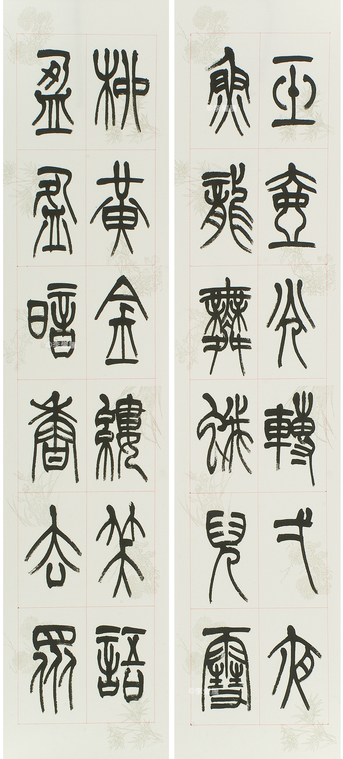 玉壺光轉弌夜
魚龍舞蛾兒雪
柳黃金縷笑語
盈盈暗香去眾